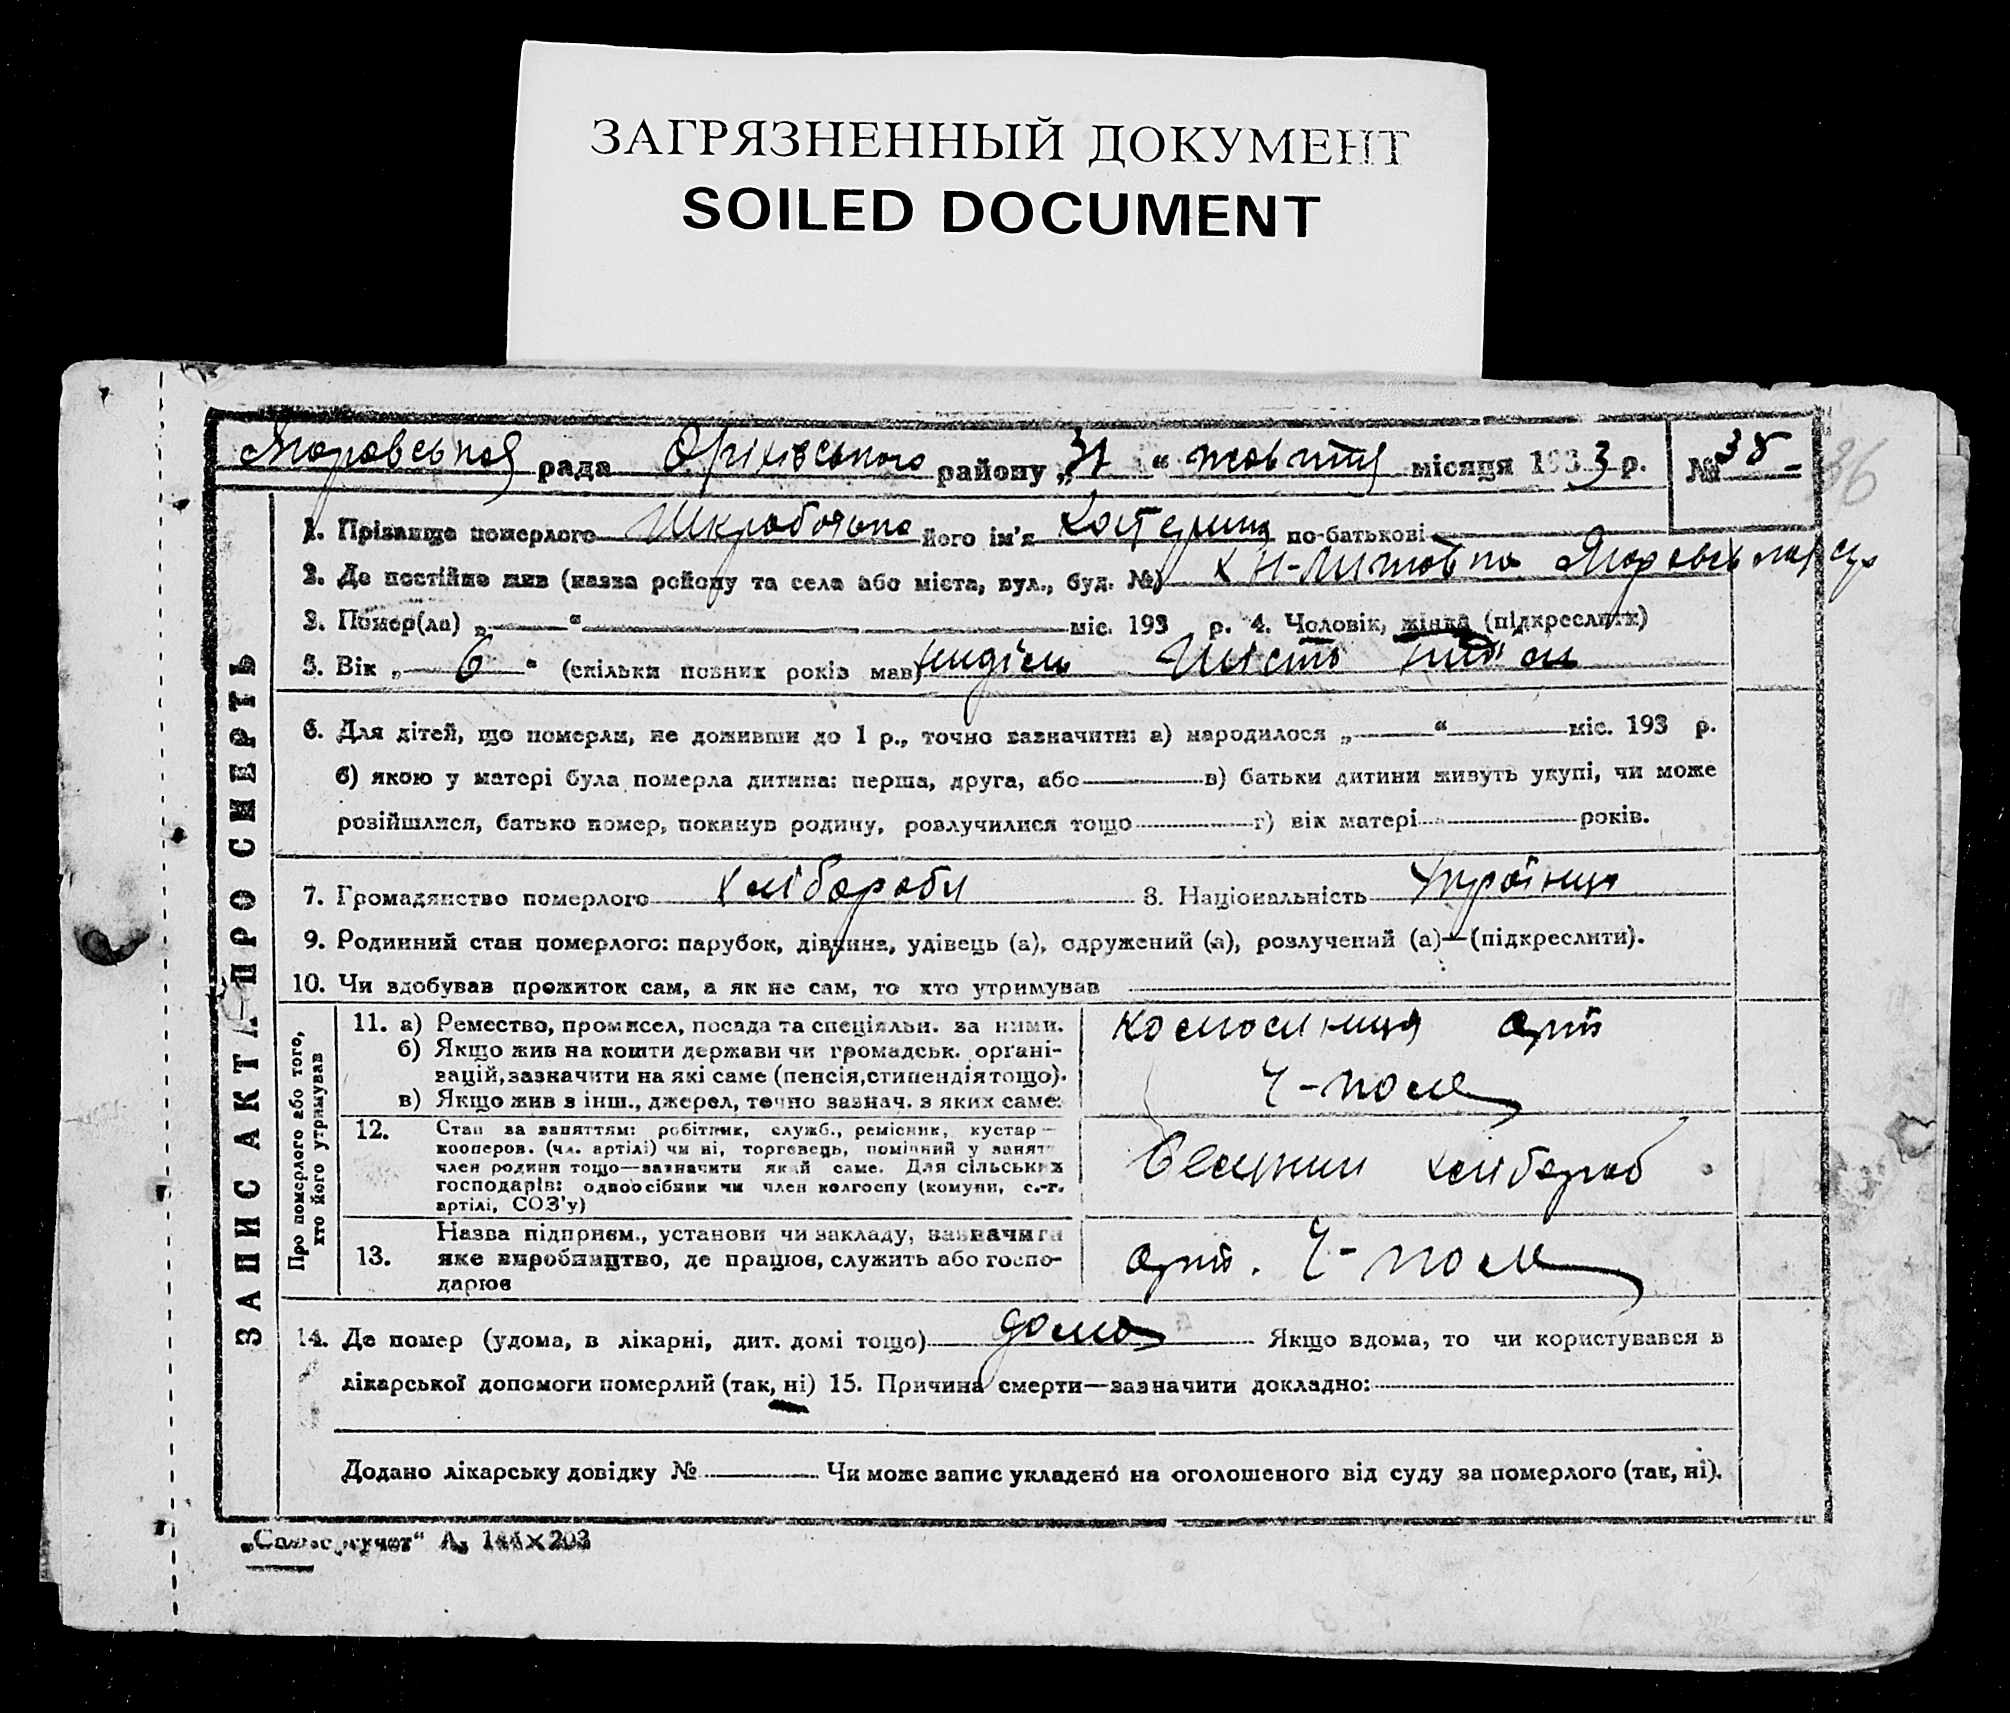 ЗАГРЯЗНЕННЫЙ ДОКУМЕНТ
SOILED DOCUMENT
рада Оріхівського району „31“ жовтня місяця 1933 р. № 38
36
ЗАПИС АКТА ПРО СМЕРТЬ
1. Прізвище померлого його ім'я Катерина по-батькові
2. Де постійно жив (назва району та села або міста, вул., буд. №)
3. Помер(ла) „ “ міс. 193 р. 4. Чоловік, жінка (підкреслити)
5. Вік „ 6 “ (скільки повних років мав) неділь Шість
6. Для дітей, що померли, не доживши до 1 р., точно зазначити: а) народилося „ “ міс. 193 р.
б) якою у матері була померла дитина: перша, друга, або в) батьки дитини живуть укупі, чи може
розійшлися, батько помер, покинув родину, розлучилися тощо г) вік матері років.
7. Громадянство померлого хлібороби 8. Національність Українка
9. Родинний стан померлого: парубок, дівчина, удівець (а), одружений (а), розлучений (а)—(підкреслити).
10. Чи здобував прожиток сам, а як не сам, то хто утримував
Про померлого або того, хто його утримував
11. а) Ремество, промисел, посада та спеціяльн. за ними.
б) Якщо жив на кошти держави чи громадськ. органі-
зацій, зазначити на які саме (пенсія, стипендія тощо).
в) Якщо жив з інш., джерел, точно зазнач. з яких саме:
колгосниця арт
Ч-поле
12. Стан за заняттям: робітник, служб., ремісник, кустар—
кооперов. (чл. артілі) чи ні, торговець, помічний у занятт.
член родини тощо—зазначити який саме. Для сільських
господарів: одноосібник чи член колгоспу (комуни, с.-г.
артілі, СОЗ'у)
хлібороб
13. Назва підприєм., установи чи закладу, зазначити
яке виробництво, де працює, служить або госпо-
дарює
арт. Ч-поле
14. Де помер (удома, в лікарні, дит. домі тощо) дома Якщо вдома, то чи користувався в
лікарської допомоги померлий (так, ні) 15. Причина смерти—зазначити докладно:
Додано лікарську довідку № Чи може запис укладено на оголошеного від суду за померлого (так, ні).
А, 144×203